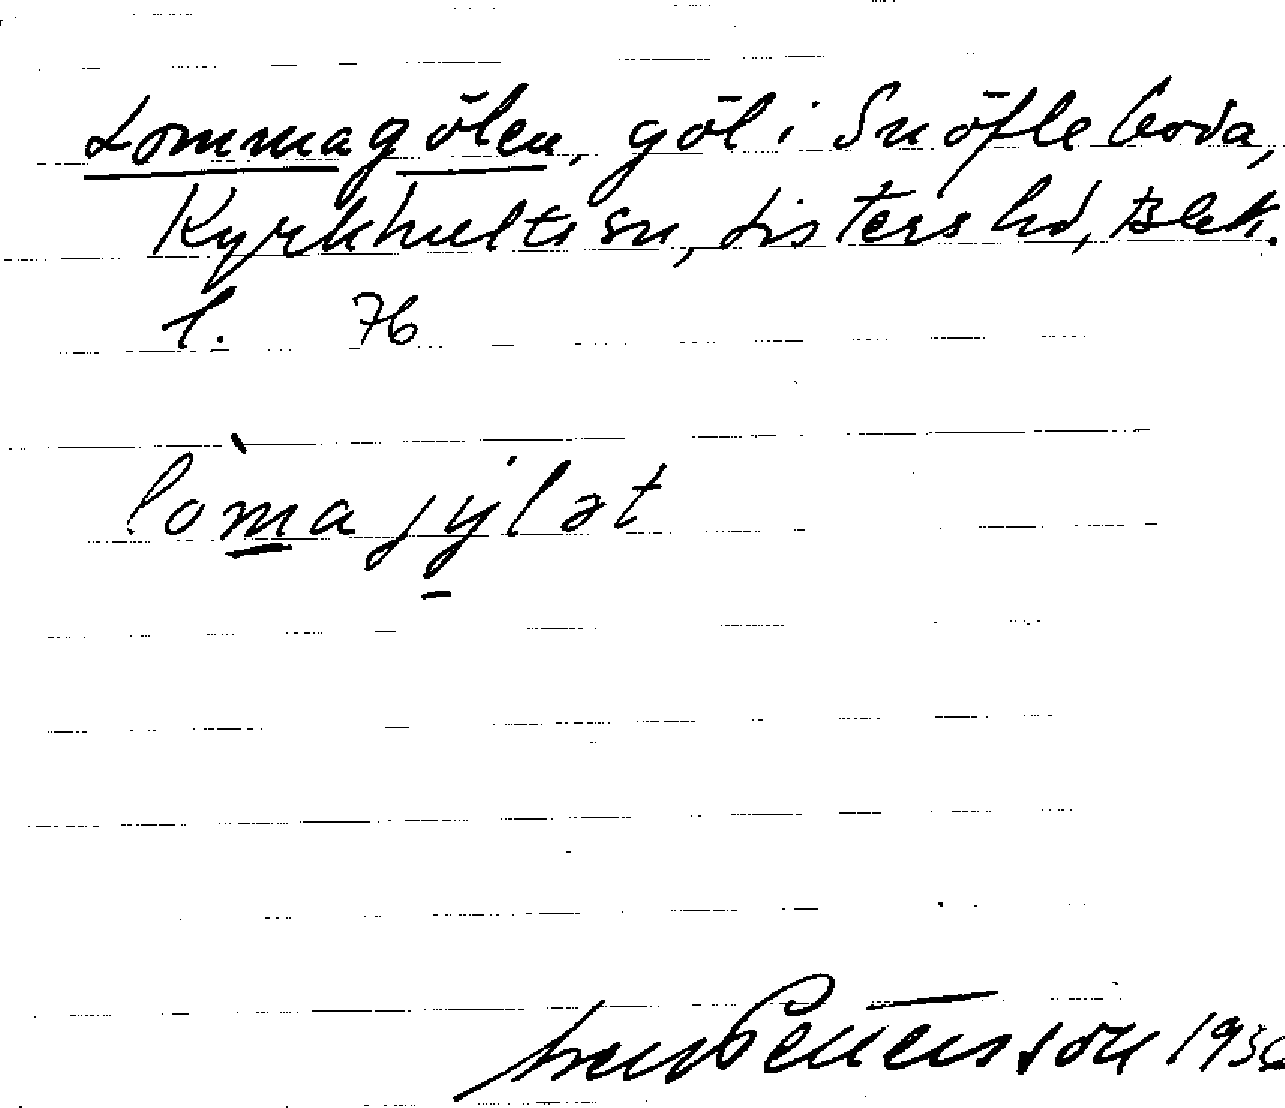 Lommagölen, göl i Snöfleboda,
Kyrkhults sn, Listers hd, Blek.
l. 76
lòmajylət
Pettersson